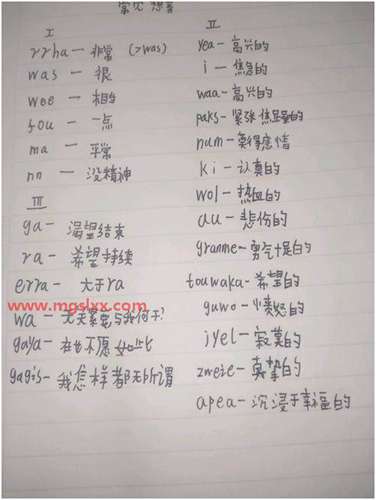 常见想音
I
rrha — 非常 (>was)
was — 很
wee — 相当
fou — 一点
ma — 平常
nn — 没精神
III
ga — 渴望结束
ra — 希望持续
erra — 大于ra
www.mgslxx.com
wa — 无关紧要与我何干?
gaya — 在也不愿如此
gagis — 我怎样都无所谓
II
yea — 高兴的
i — 焦急的
waa — 高兴的
paks — 紧张焦虑的
num — 莫得感情
ki — 认真的
wol — 热血的
au — 悲伤的
granme — 勇气十足的
touwaka — 希望的
guwo — 愤怒的
jyel — 寂寞的
zweie — 真挚的
apea — 沉浸于幸福的